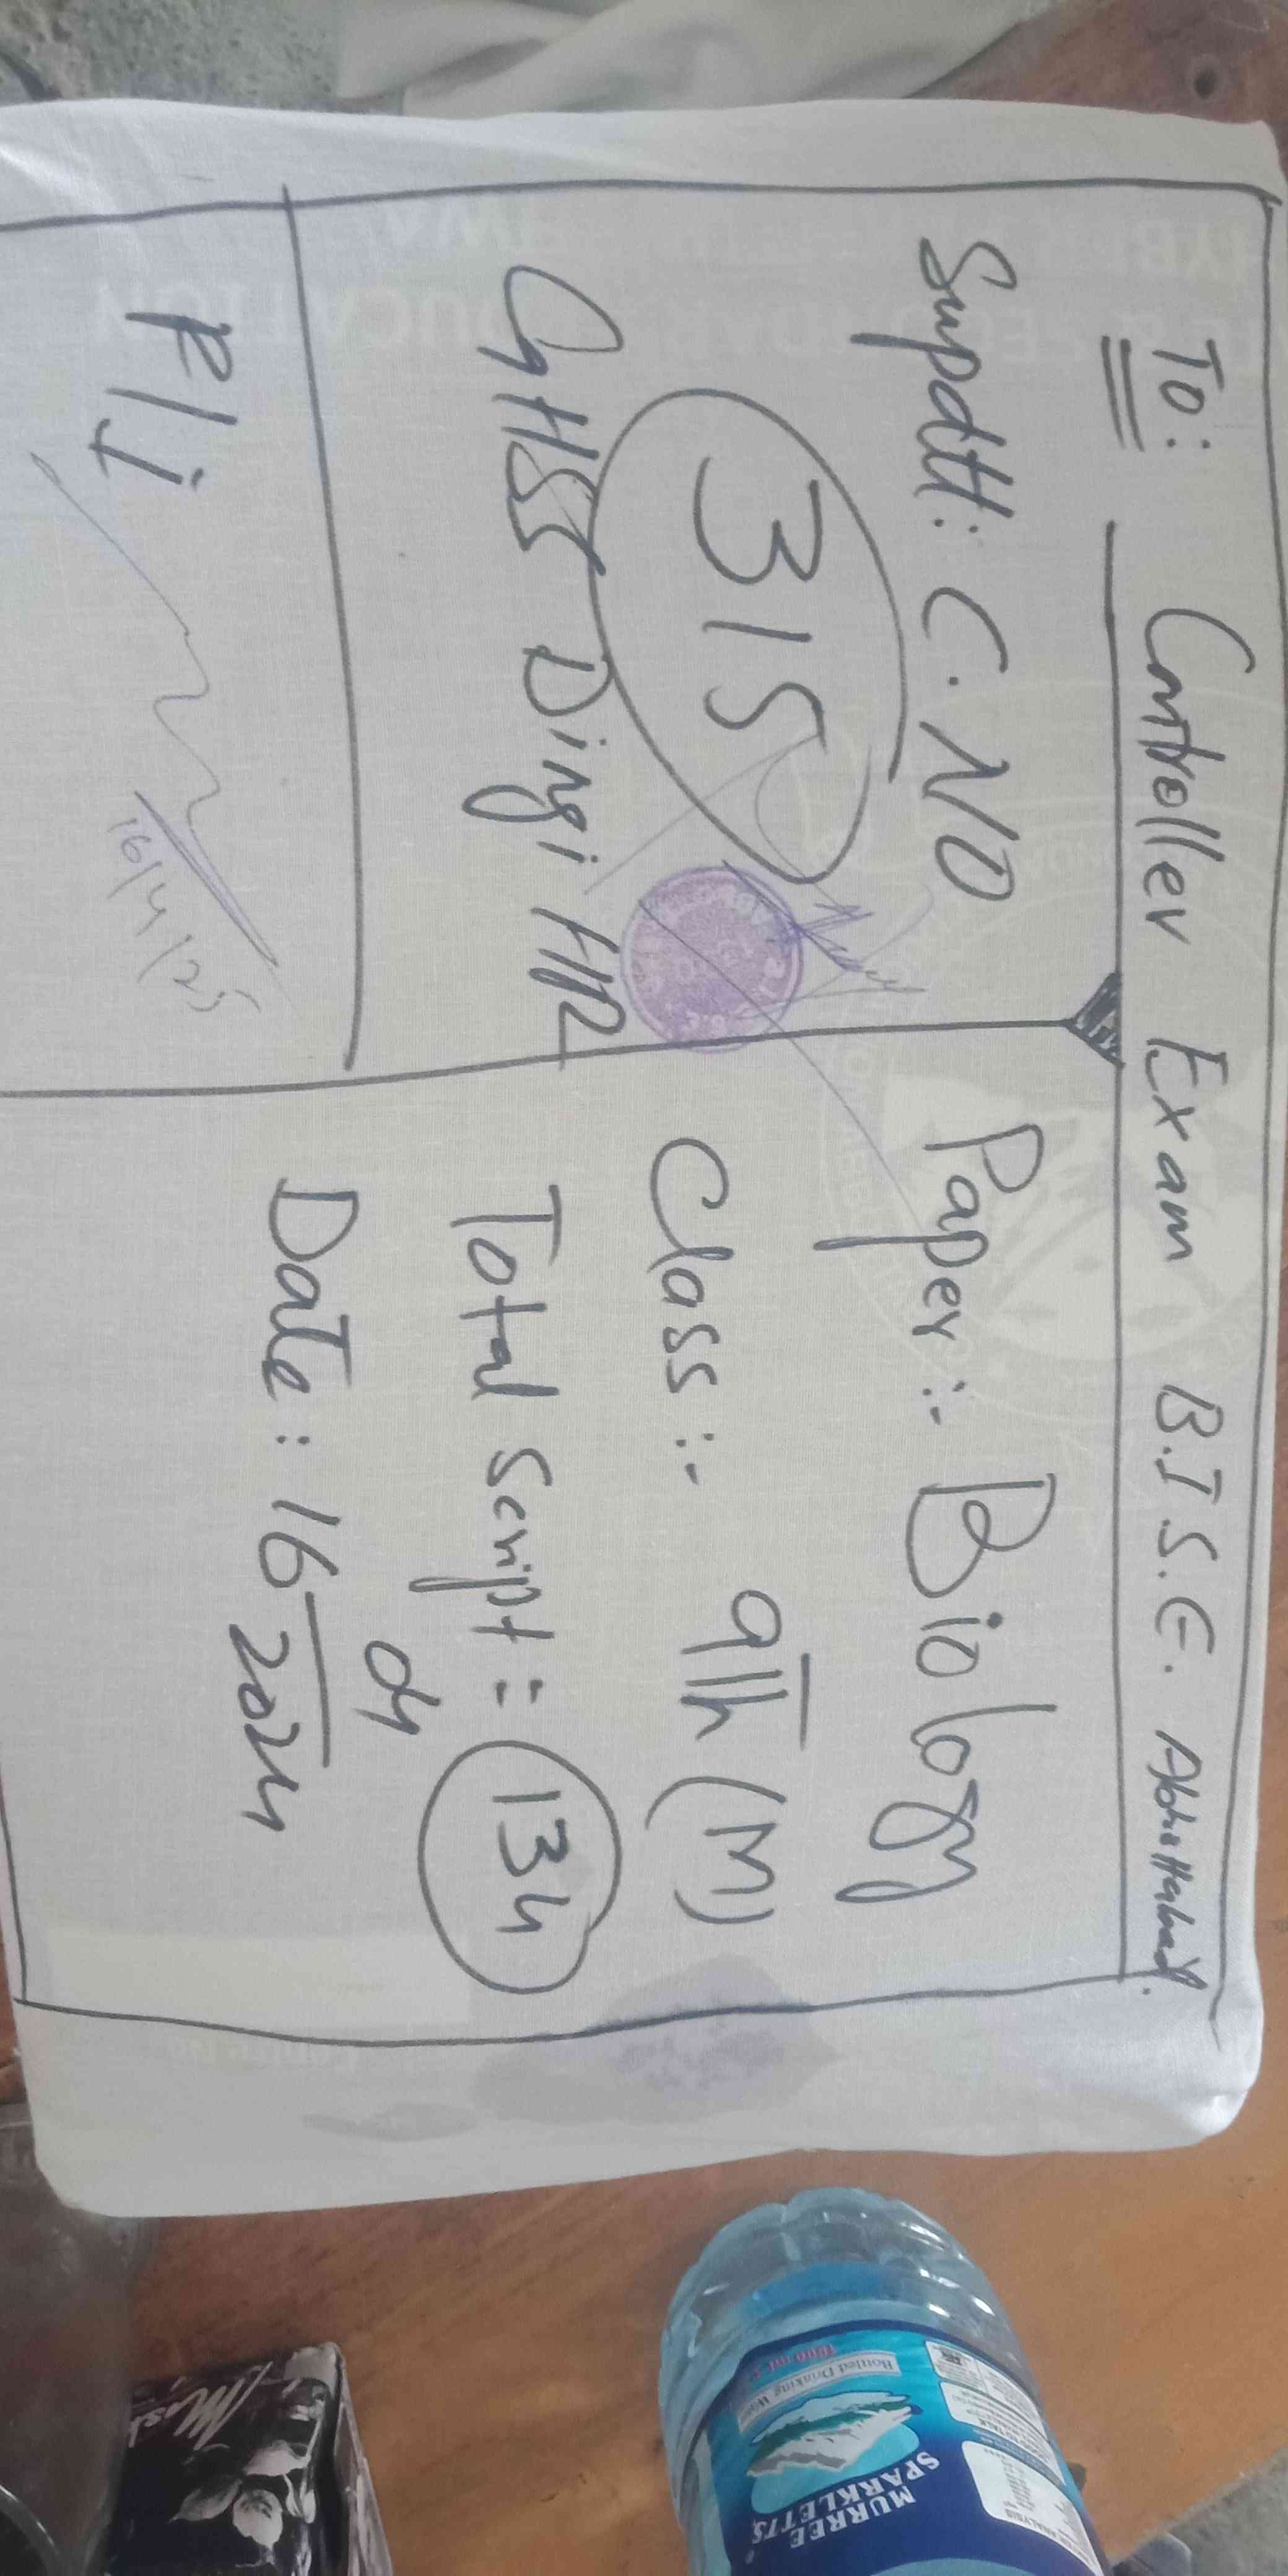 To: Controller Exam B.I.S.E. Abbottabad.
Supdtt: C.NO
315
GHSS Dingi HR
P/I
16/4/25
Paper:- Biology
Class:- 9th (M)
Total Script = 134
Date: 16/04/2024
MURREE
SPARKLETTS
Bottled Drinking Water